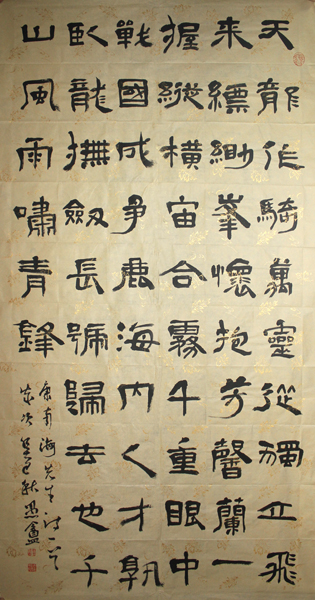 天龍作騎萬靈從獨立飛
来縹緲峯懷抱芳馨蘭一
握縱横宙合霧千重眼中
戰國成爭鹿海内人才孰
臥龍撫劍長號歸去也千
山風雨嘯青鋒
康南海先生詩一首
歲次